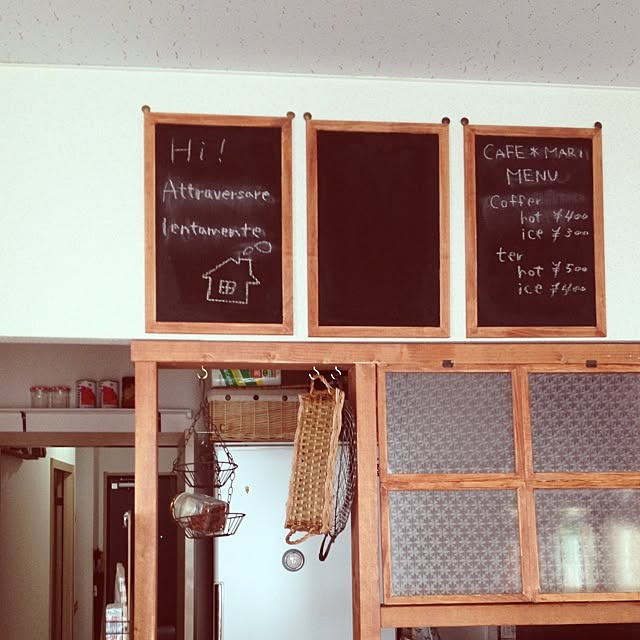 Hi!
Attraversare
lentamente
CAFE * MARI
MENU
Coffer
hot ¥400
ice ¥300
ter
hot ¥500
ice ¥400